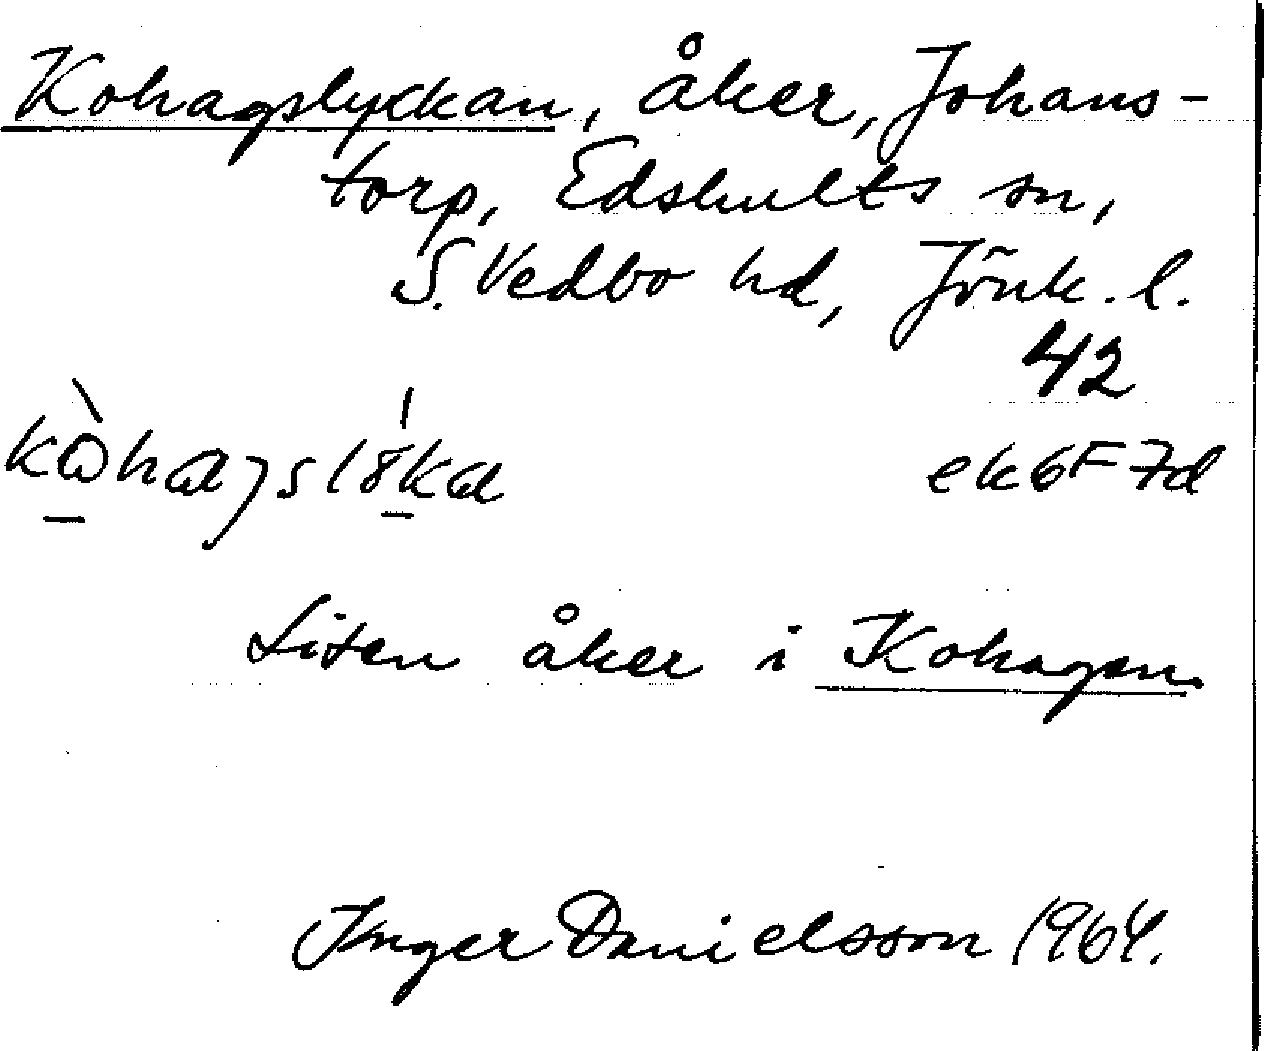 Kohagslyckan, åker, Johans-
torp, Edshults sn,
S. Vedbo hd, Jönk. l.
42
ek 6F7d
Liten åker i Kohagen.
Inger Danielsson 1964.